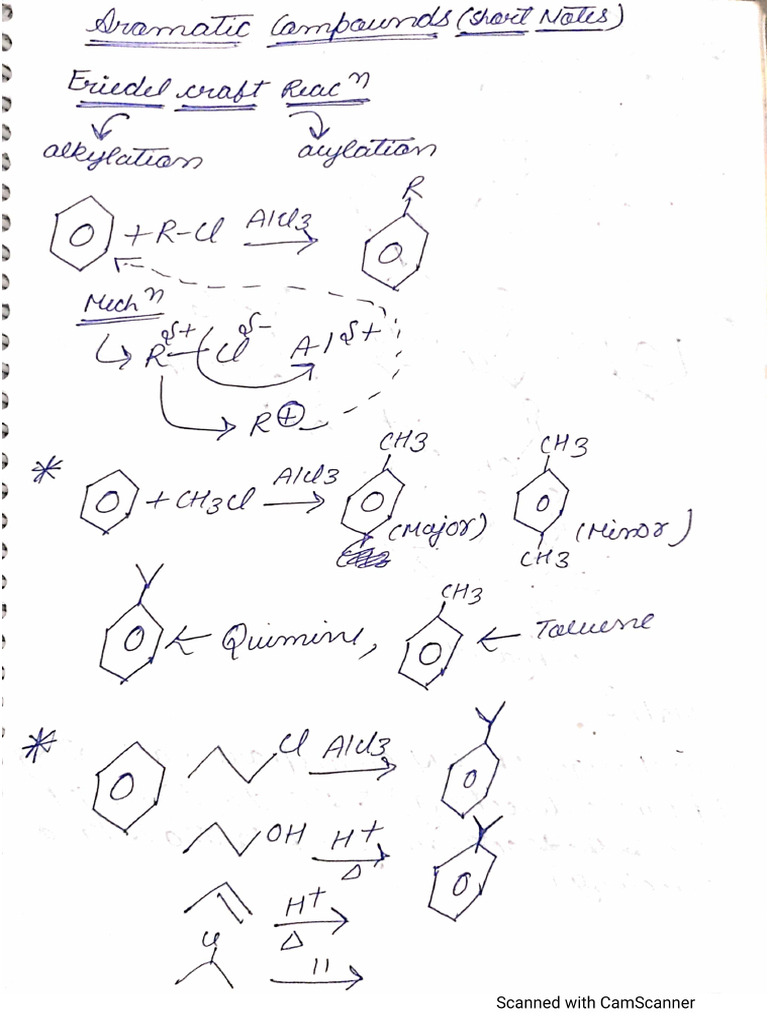 Aromatic Compounds (Short Notes)
Friedel craft Reacⁿ
alkylation acylation
R
+ R-Cl AlCl3
Mechⁿ
R δ+ Cl δ- Al δ+
R ⊕
CH3 CH3
* + CH3Cl AlCl3 (Major) (Minor)
CH3
CH3
← Quimine, ← Toluene
* Cl AlCl3
OH H+
Δ
H+
Δ
Cl
11
Scanned with CamScanner